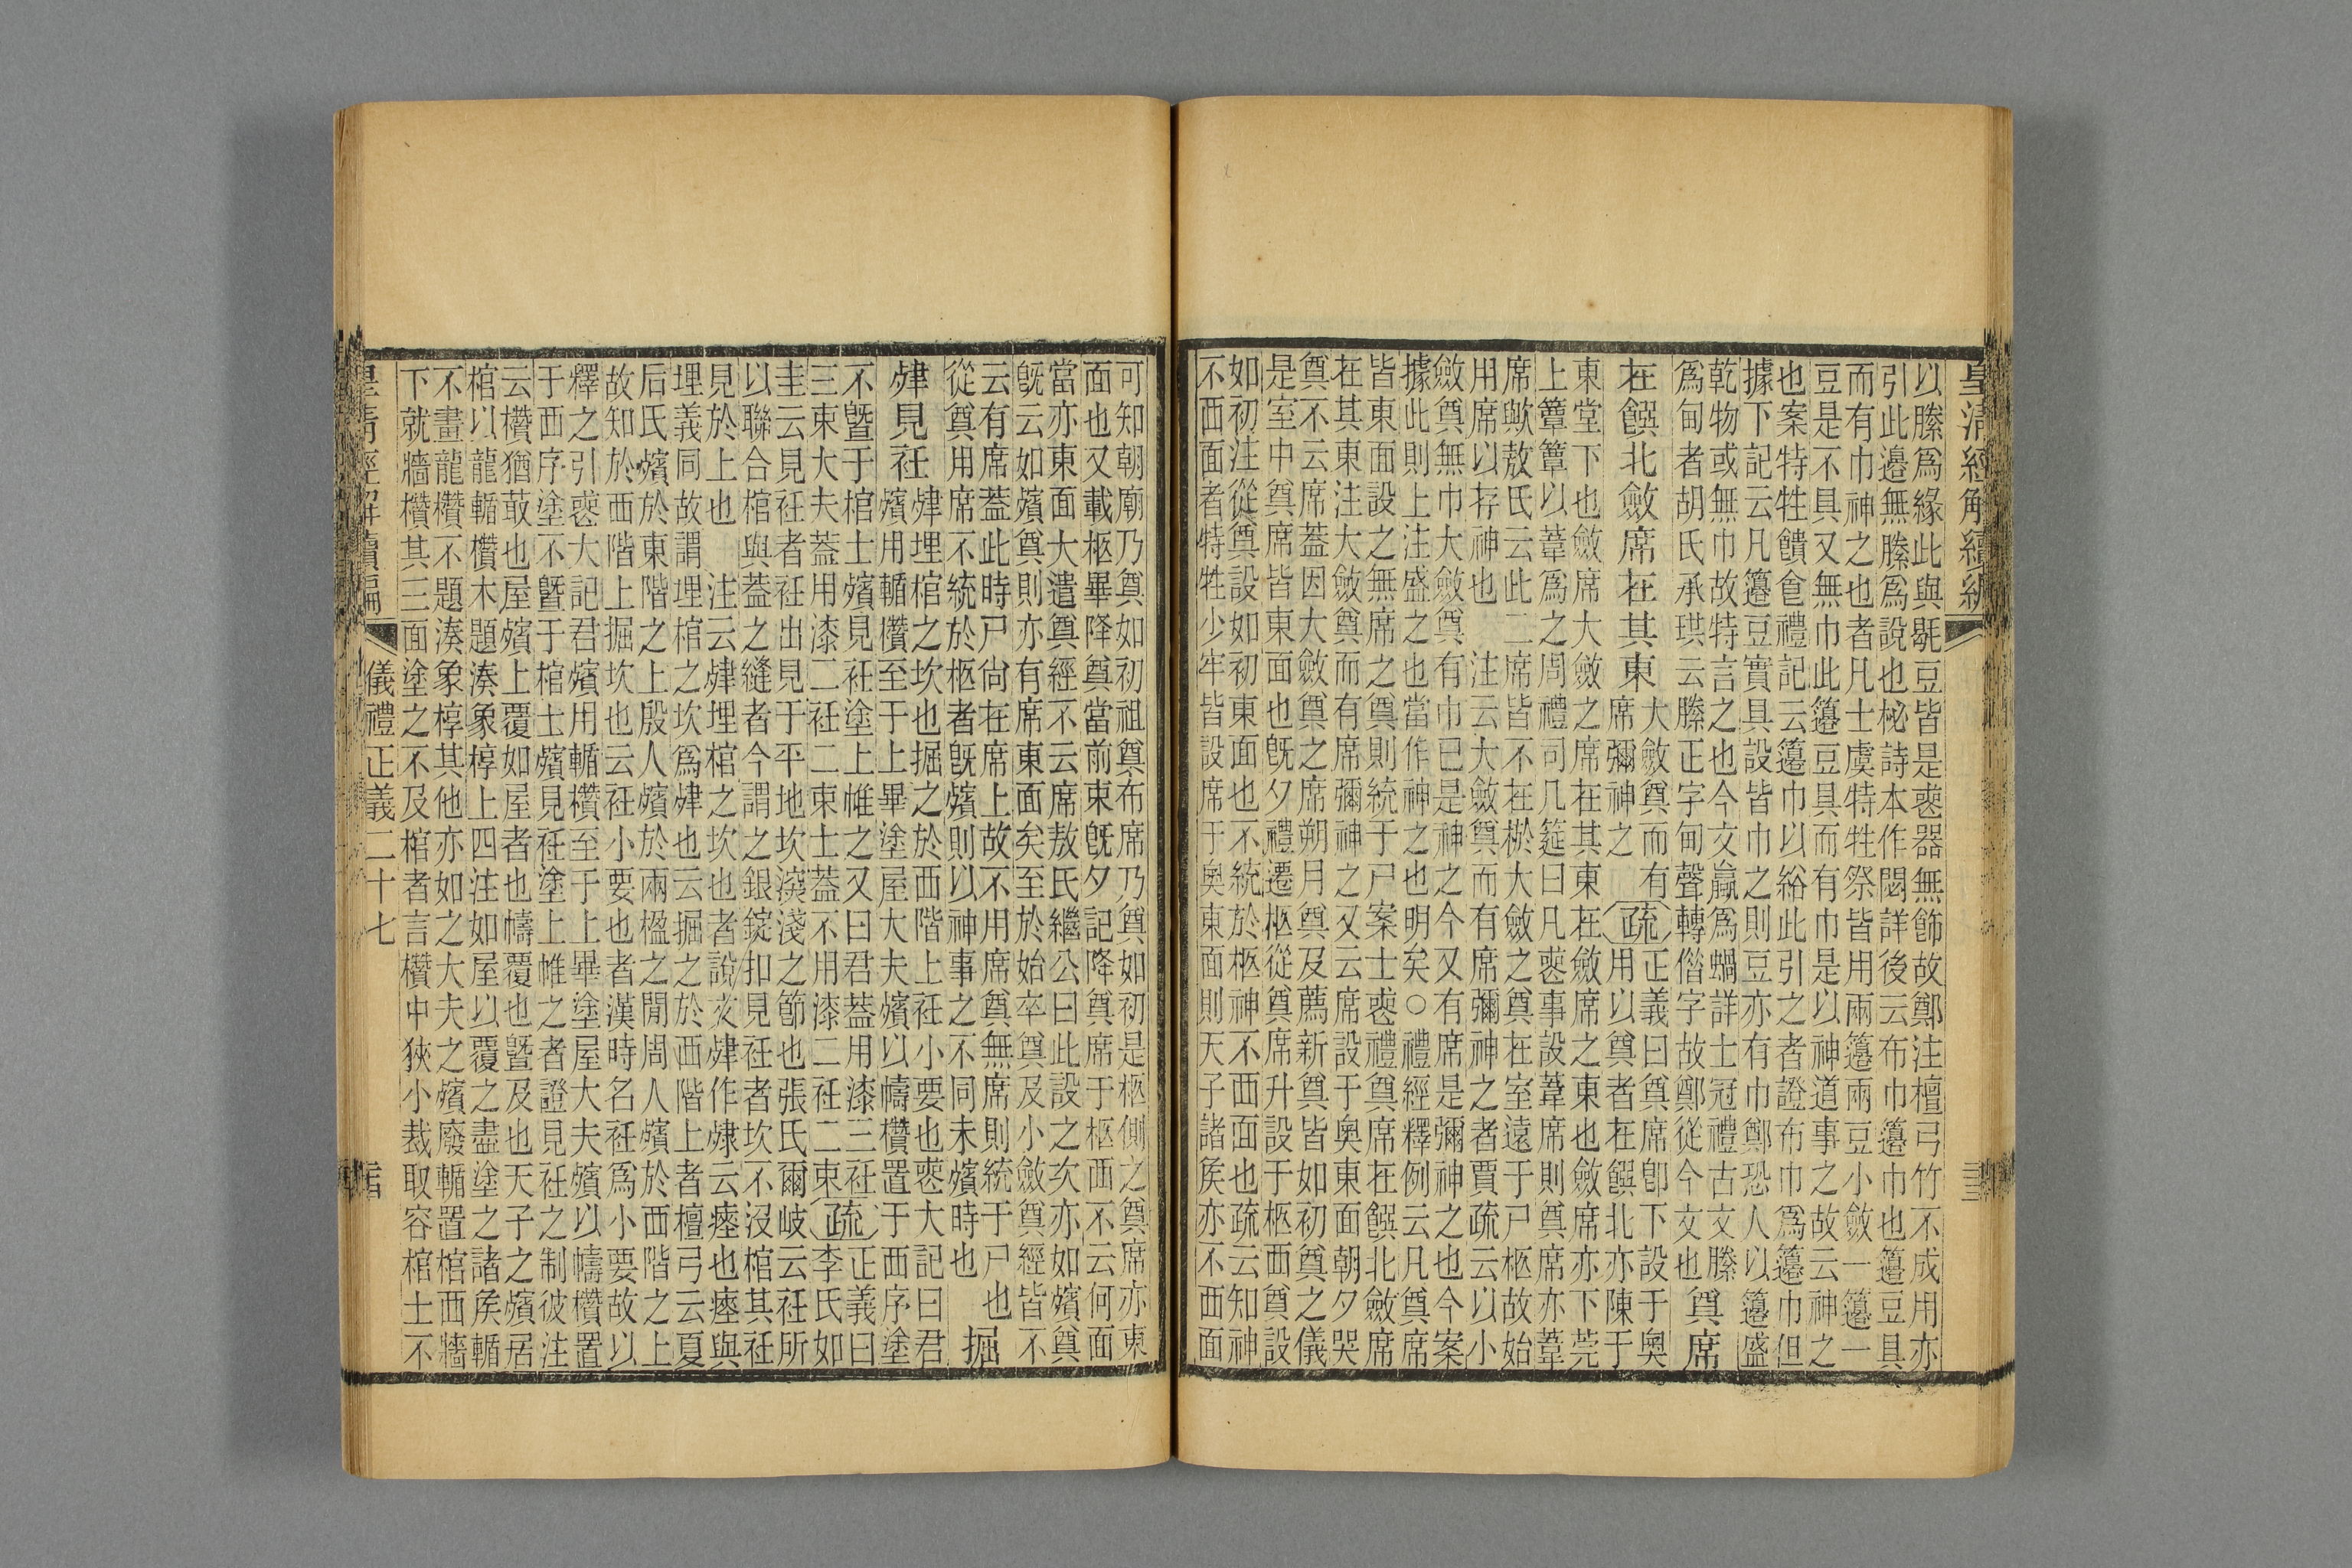 皇清經解續編
以縢爲緣此與毼豆皆是䘮器無飾故鄭注檀弓竹不成用亦
引此邊無縢爲說也柲詩本作閟詳後云布巾籩巾也籩豆具
而有巾神之也者凡士虞特牲祭皆用兩籩兩豆小斂一籩一
豆是不具又無巾此籩豆具而有巾是以神道事之故云神之
也案特牲饋食禮記云籩巾以綌此引之者證布巾爲籩巾但
據下記云凡籩豆實具設皆巾之則豆亦有巾鄭恐人以籩盛
乾物或無巾故特言之也今文蠃爲蝸詳士冠禮古文縢
爲甸者胡氏承珙云縢正字甸聲轉偕字故鄭從今文也
奠席
在饌北斂席在其東
大斂奠而有
席彌神之
疏
正義曰奠席卽下設于奧
用以奠者在饌北亦陳于
東堂下也斂席大斂之席在其東在斂席之東也斂席亦下莞
上簟簟以葦爲之周禮司几筵曰凡䘮事設葦席則奠席亦葦
席歟敖氏云此二席皆不在棜大斂之奠在室遠于尸柩故始
用席以存神也　注云大斂奠而有席彌神之者賈疏云以小
斂奠無巾大斂奠有巾已是神之今又有席是彌神之也今案
據此則上注盛之也當作神之也明矣○禮經釋例云凡奠席
皆東面設之無席之奠則統于尸案士䘮禮奠席在饌北斂席
在其東注大斂奠而有席彌神之又云席設于奧東面朝夕哭
奠不云席蓋因大斂奠之席朔月奠及薦新奠皆如初奠之儀
是室中奠席皆東面也旣夕禮遷柩從奠席升設于柩西奠設
如初注從奠設如初東面也不統於柩神不西面也疏云知神
不西面者特牲少牢皆設席于奧東面則天子諸侯亦不西面
可知朝廟乃奠如初祖奠布席乃奠如初是柩側之奠席亦東
面也又載柩畢降奠當前束旣夕記降奠席于柩西不云何面
當亦東面大遣奠經不云席敖氏繼公曰此設之亥亦如殯奠
旣云如殯奠則亦有席東面矣至於始卒奠及小斂奠經皆不
云有席蓋此時尸尙在席上故不用席奠無席則統于尸也
從奠用席不統於柩者旣殯則以神事之不同未殯時也
掘
肂見衽
肂埋棺之坎也掘之於西階上衽小要也䘮大記曰君
殯用輴欑至于上畢塗屋大夫殯以幬欑置于西序塗
不曁于棺士殯見衽塗上帷之又曰君蓋用漆三衽
三束大夫蓋用漆二衽二束士蓋不用漆二衽二束
疏
正義曰
李氏如
圭云見衽者衽出見于平地坎深淺之節也張氏爾岐云衽所
以聯合棺與蓋之縫者今謂之銀錠扣見衽者坎不沒棺其衽
見於上也　注云肂埋棺之坎也者說文肂作殔云瘞也瘞與
埋義同故謂埋棺之坎爲肂也云掘之於西階上者檀弓云夏
后氏殯於東階之上殷人殯於兩楹之閒周人殯於西階之上
故知於西階上掘坎也云衽小要也者漢時名衽爲小要故以
釋之引䘮大記君殯用輴欑至于上畢塗屋大夫殯以幬欑置
于西序塗不曁于棺士殯見衽塗上帷之者證見衽之制彼注
云欑猶菆也屋殯上覆如屋者也幬覆也曁及也天子之殯居
棺以龍輴欑木題湊象椁上四注如屋以覆之盡塗之諸侯輴
不畫龍欑不題湊象椁其他亦如之大夫之殯廢輴置棺西牆
下就牆欑其三面塗之不及棺者言欑中狹小裁取容棺士不
皇清經解續編
儀禮正義二十七